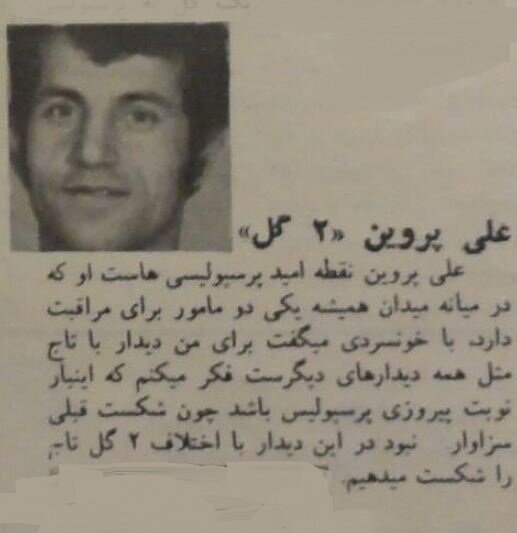 علی پروین «۲ گل»
علی پروین نقطه امید پرسپولیسی هاست او که
در میانه میدان همیشه یکی دو مامور برای مراقبت
دارد، با خونسردی میگفت برای من دیدار با تاج
مثل همه دیدارهای دیگرست فکر میکنم که اینبار
نوبت پیروزی پرسپولیس باشد چون شکست قبلی
سزاوار نبود در این دیدار با اختلاف ۲ گل تاج
را شکست میدهیم.